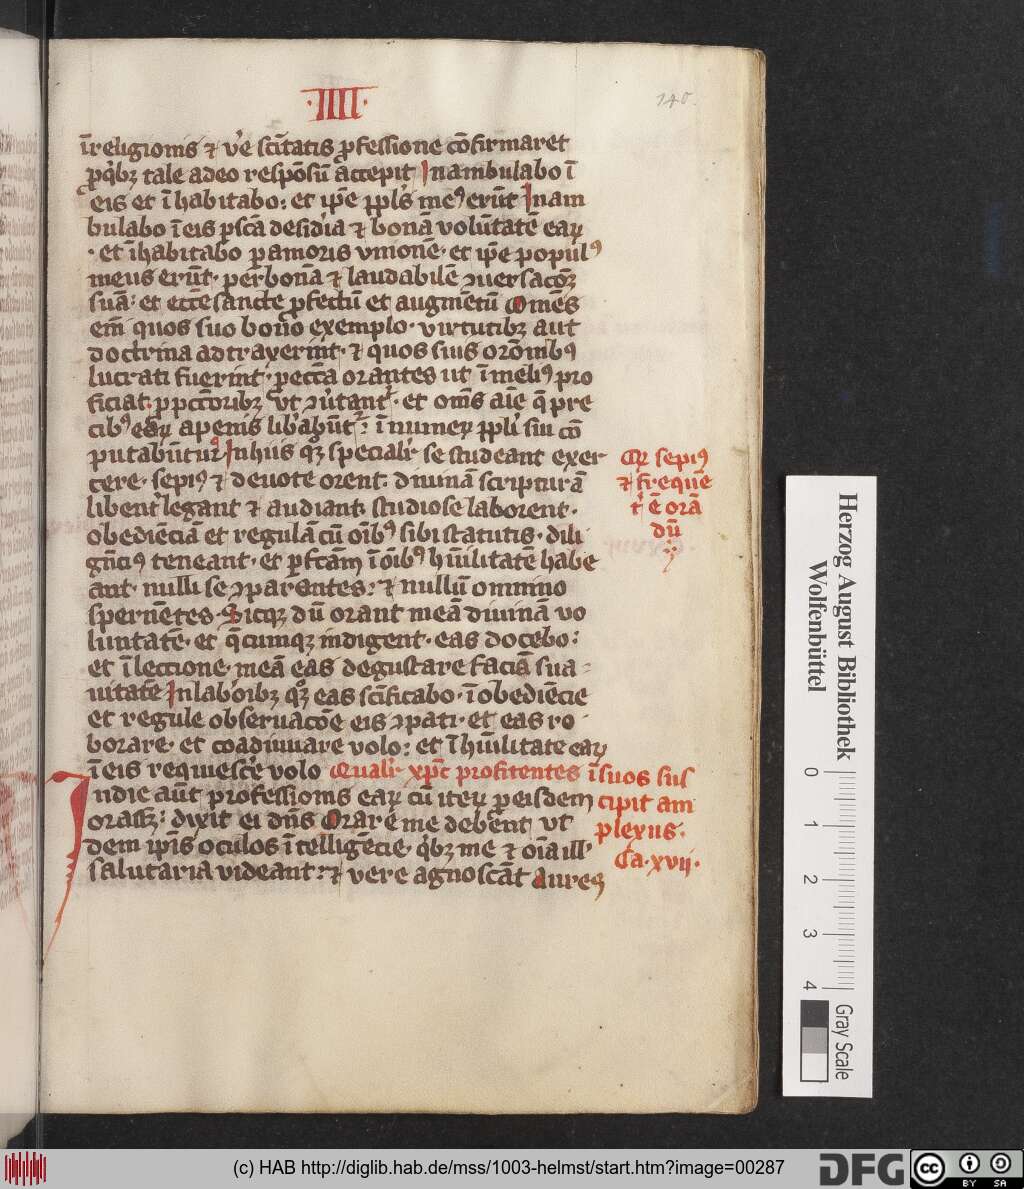 ·IIII·
140.
ī religionis ⁊ ve̅ sc̅itatis ꝓfessione co̅firmaret
ꝓ qͥbꝫ tale adeo respo̅su̅ accepit Inambulabo ī
eis et ī habitabo: et ip̅e pp̅ls meꝰ eru̅t Inam
bulabo ī eis ꝑ sc̅a desid̓ia ⁊ bona̅ volu̅tate̅ eaꝝ
· et īhabitabo ꝑ amoris vnione̅· et ip̅e populꝰ
meus eru̅t· per bona̅ ⁊ laudabile̅ ꝯuersaco̅ꝫ
sua̅: et ecc̅e sancte ꝓfectu̅ et augme̅tu̅ Om̅es
em̅ quos suo bono exemplo· virtutibꝫ aut
doctrina adtraxerint· ⁊ quos suis oro̅nibꝰ
lucrati fuerint· ꝓ ecc̅a orantes ut ī meliꝰ pro
ficiat· ꝓ pc̅c̅oribꝫ vt ꝯu̓tant᷑· et om̅s aīe q̅ pre
cibꝰ eaꝝ a penis lib̓abu̅t᷑: ī numeꝝ pp̅li sui co̅
putabu̅tur Inhiis qꝫ speciali᷑ se studeant exer
cere· sepiꝰ ⁊ deuote orent· diuina̅ scriptura̅
libent̓ legant ⁊ audiant· studiose laborent·
obedie̅cia̅ et regula̅ cu̅ oībꝰ sibi statutis· dili
ge̅ciꝰ teneant· et ꝑfc̅am ī oībꝰ hu̅ilitate̅ habe
ant· nulli se ꝯparantes: ⁊ nullu̅ omnino
sperne̅tes· Sicqꝫ du̅ orant mea̅ diuina̅ vo
luntate̅· et q̅cumqꝫ indigent· eas docebo:
et ī leccione· mea̅ eas degustare facia̅ sua
uitate̅ In laboribꝫ qꝫ eas sc̅ificabo· ī obedie̅cie
et regule obseruaco̅e eis ꝯpati· et eas ro
borare· et coadiuuare volo: et ī hu̅ilitate eaꝝ
ī eis requiesce̓ volo Quali᷑ xp̅c profitentes ī suos sus
cipit am
plexus·
Ca·xvij·
Qꝙ sepiꝰ
⁊ freque̅
t̓ e̅ ora̅
du̅
Indie au̅t professionis eaꝝ cu̅ iteꝝ ꝓ eisdem
orasse̅: dixit ei dn̅s Orare me debent vt
dem ip̅is oculos ī telligencie· qͥbꝫ me ⁊ oīa ill᷑
salutaria videant: ⁊ vere agnosca̅t Aures
Herzog August Bibliothek
Wolfenbüttel
0 1 2 3 4
Gray Scale
(c) HAB http://diglib.hab.de/mss/1003-helmst/start.htm?image=00287
DFG
cc BY SA